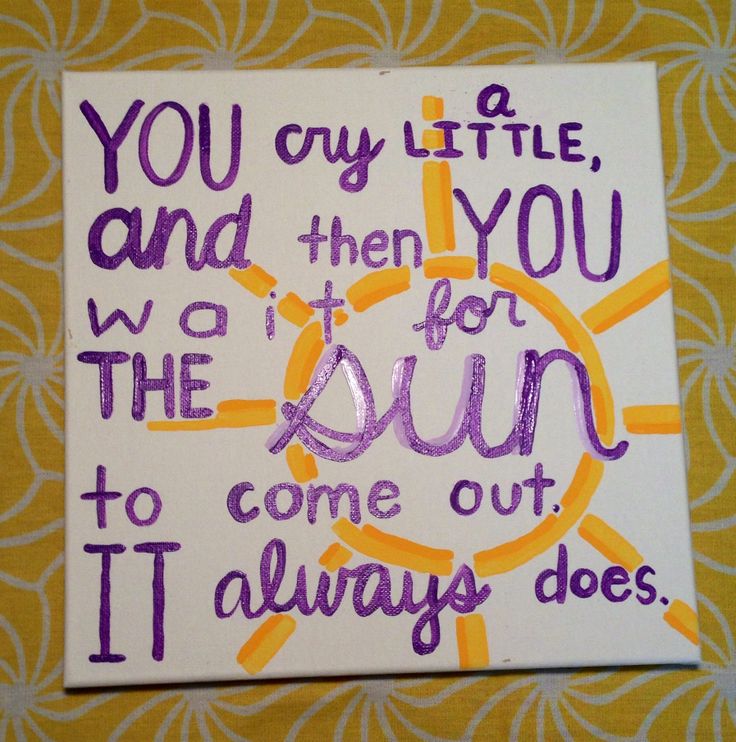 YOU cry a LITTLE,
and then YOU
wait for
THE sun
to come out.
IT always does.